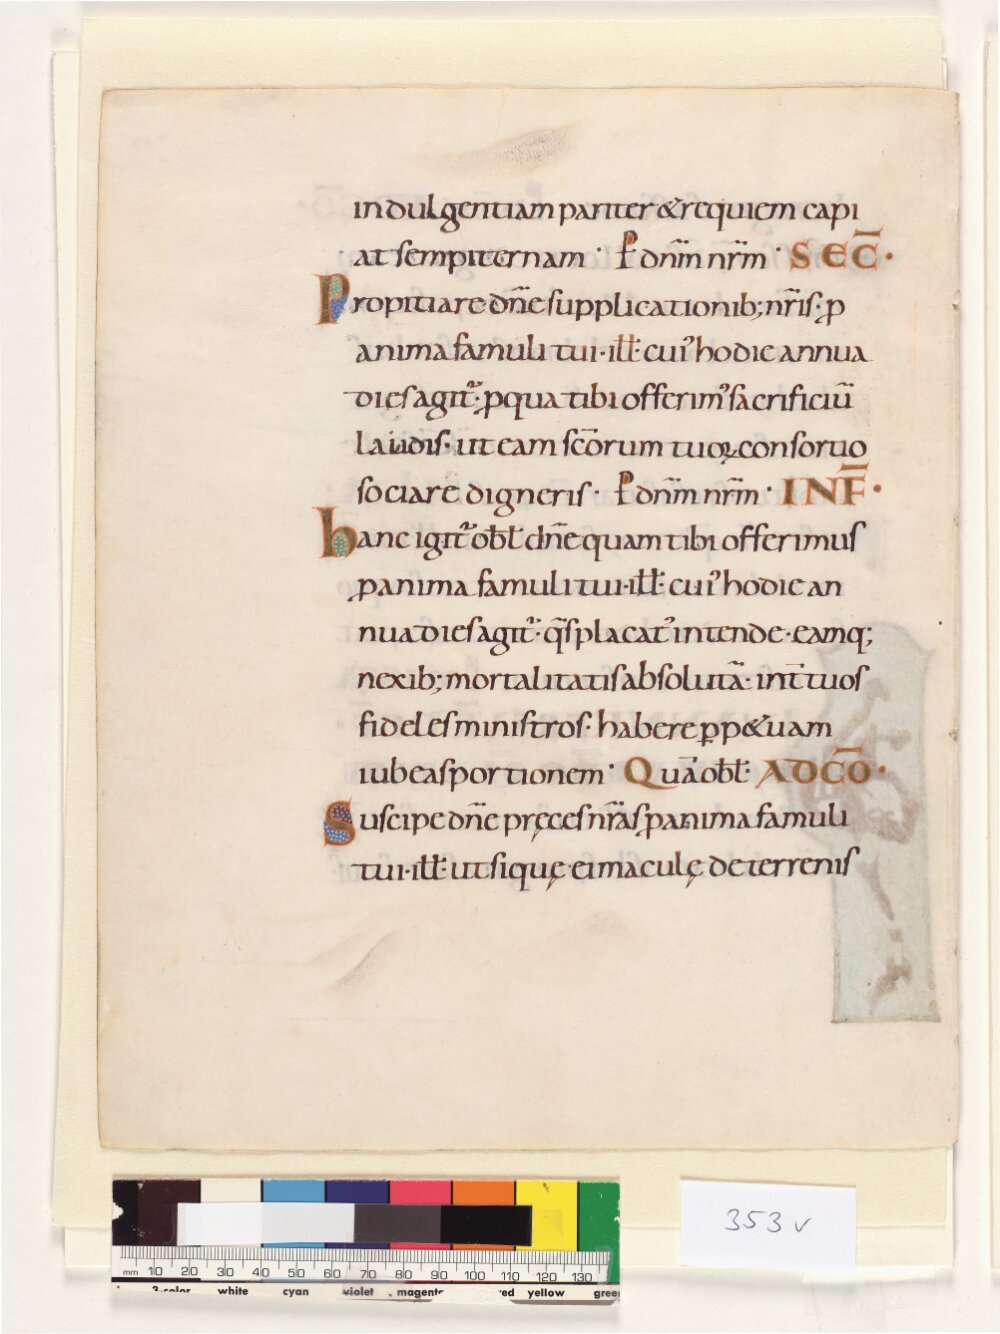 indulgentiam pariter & requiem capi
at sempiternam · P dnm̄ nr̄m · SEC̄ ·
Propitiare dn̄e supplicationib; nr̄is · ꝓ
anima famuli tui · ill̄ · cui᾽ hodie annua
dies agit᷑ · ꝓ qua tibi offerim᾽ sacrificiū
laudis · ut eam sc̄orum tuoꝝ consortio
sociare digneris · P dnm̄ nr̄m · INF̄ ·
hanc igit᷑ obl̄ dn̄e quam tibi offerimus
ꝓ anima famuli tui · ill̄ · cui᾽ hodie an
nua dies agit᷑ · q̄s placat᾽ intende · eamq;
nexib; mortalitatis absolutā · int̄ tuos
fideles ministros · habere ꝑp&uam
iubeas portionem · Quā obl̄ · ADCŌ ·
Suscipe dn̄e pręces nr̄as ꝓ anima famuli
tui · ill̄ · ut siquę ei maculę de terrenis
353v
mm 10 20 30 40 50 60 70 80 90 100 110 120 130
3-color white cyan violet magenta red yellow green